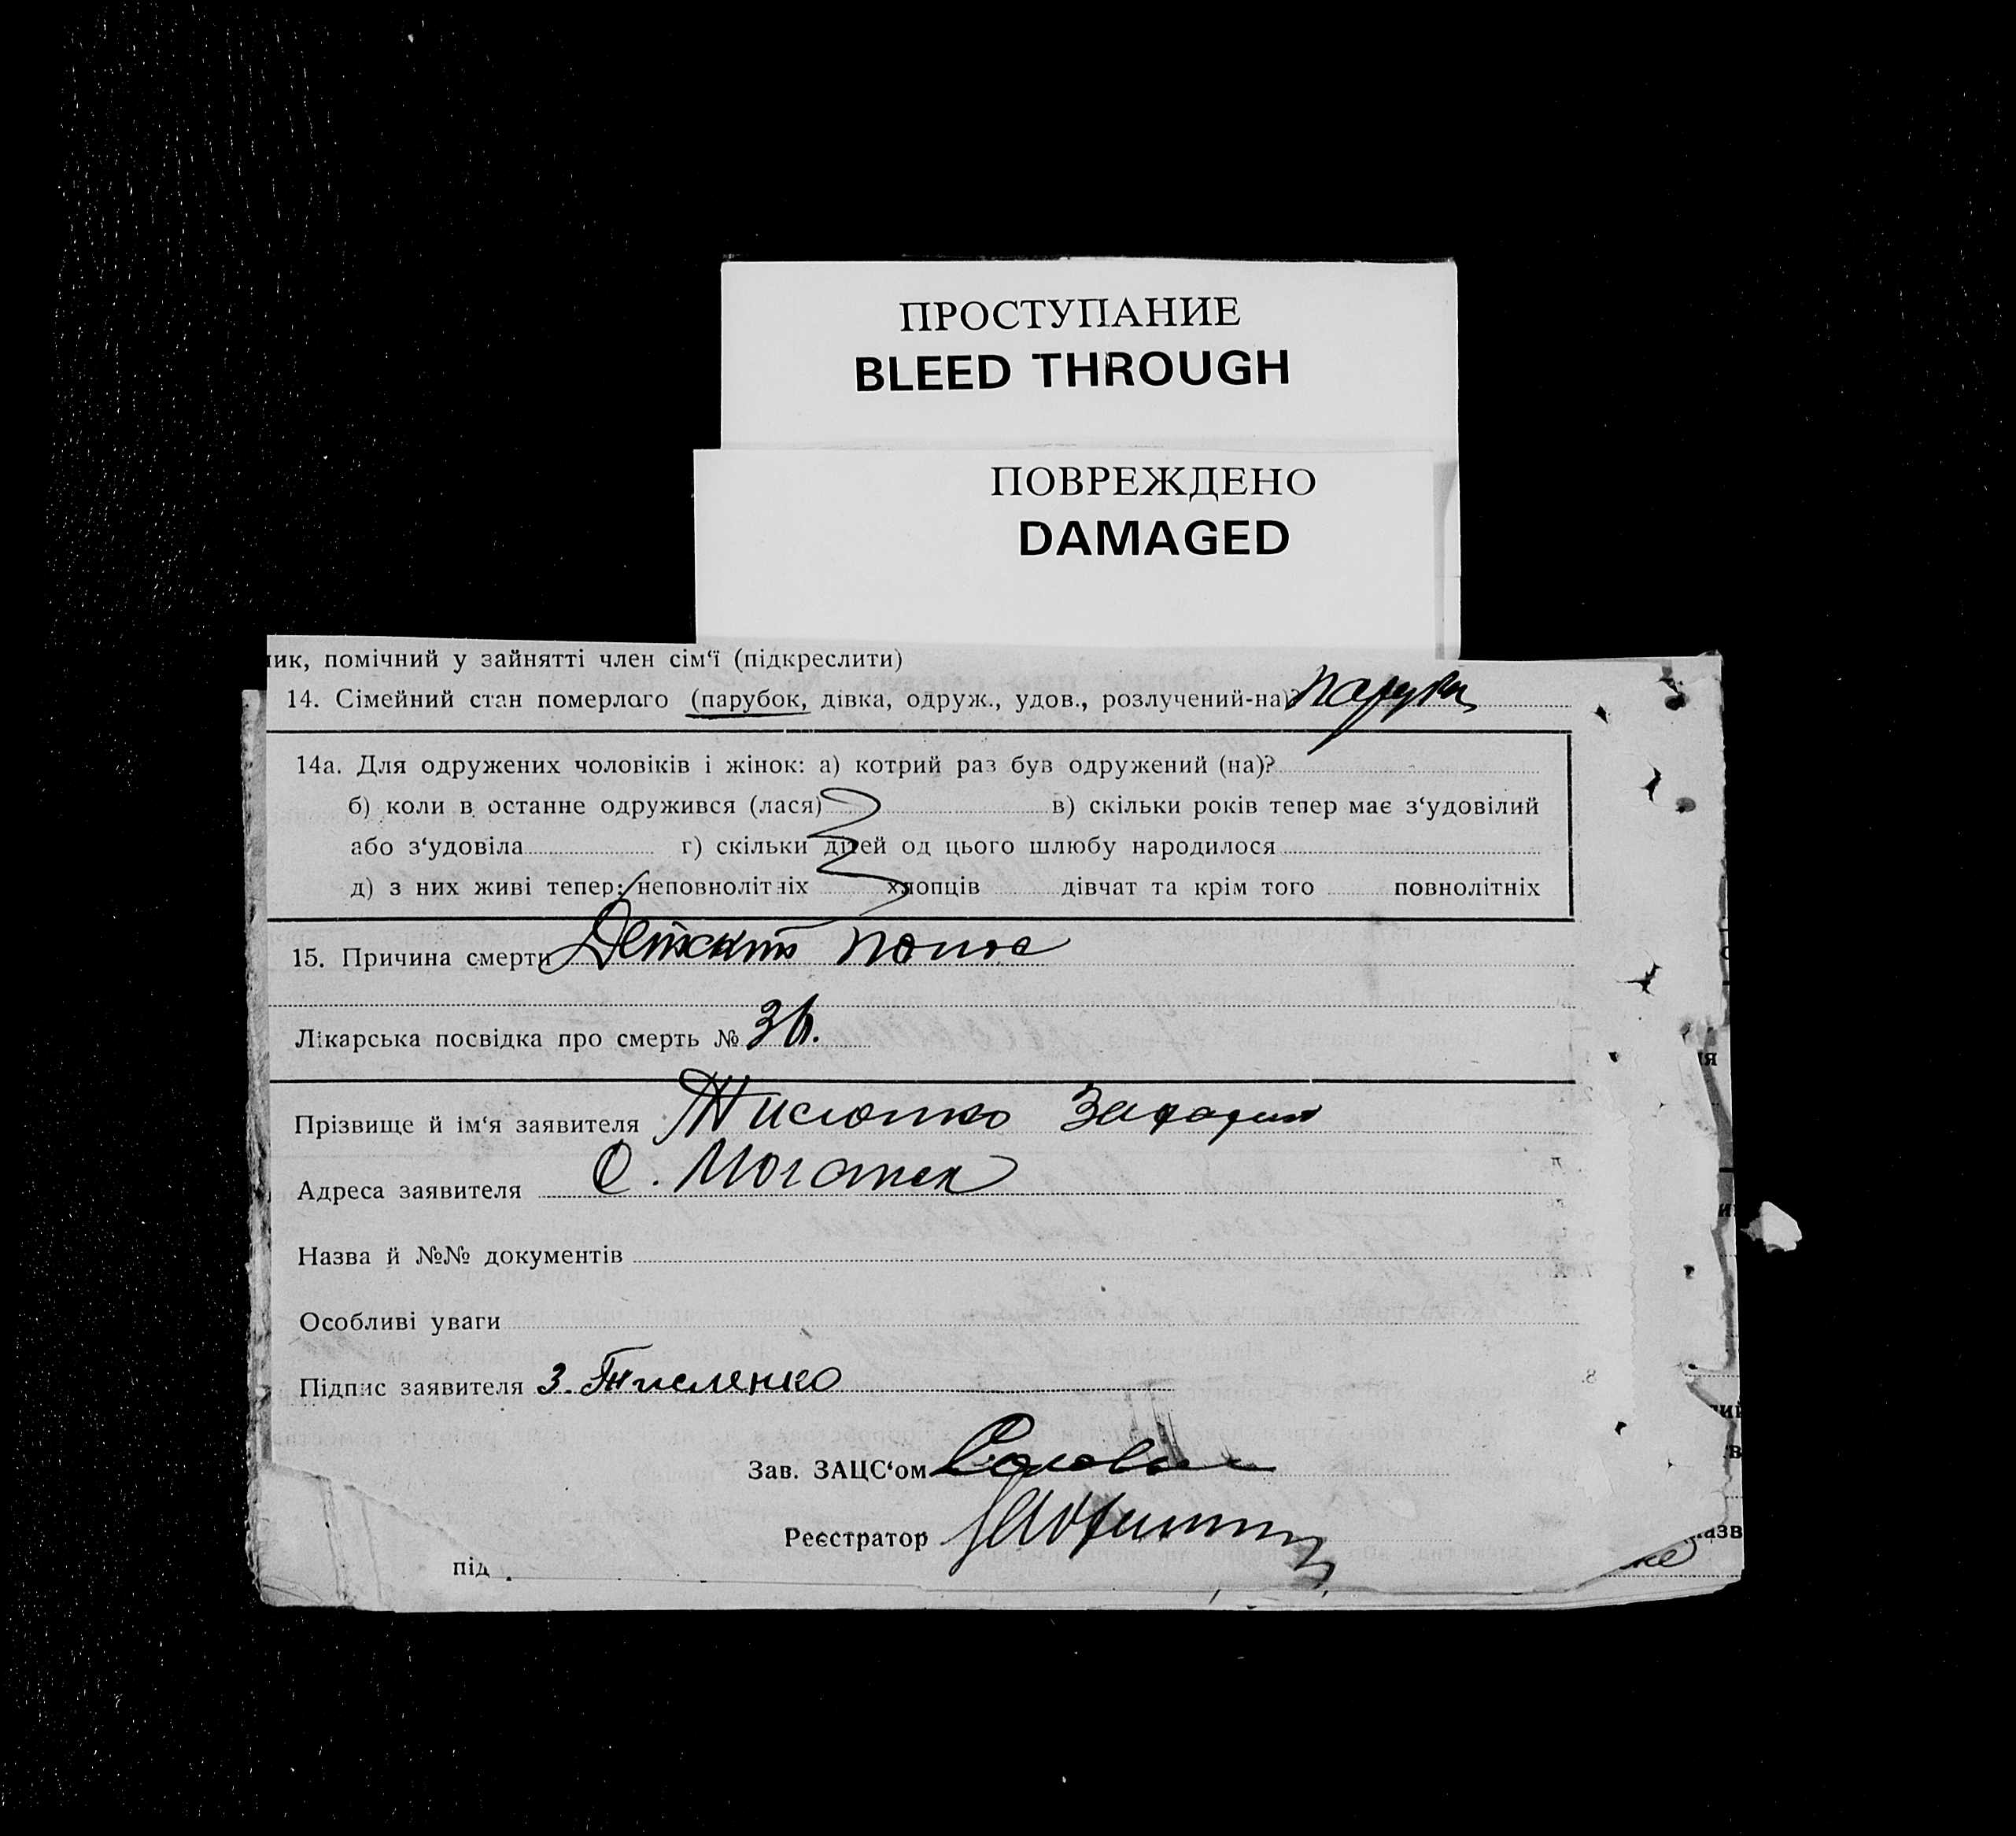 ПРОСТУПАНИЕ
BLEED THROUGH
ПОВРЕЖДЕНО
DAMAGED
ик, помічний у зайнятті член сім'ї (підкреслити)
14. Сімейний стан померлого (парубок, дівка, одруж., удов., розлучений-на)?
14а. Для одружених чоловіків і жінок: а) котрий раз був одружений (на)?
б) коли в останне одружився (лася) в) скільки років тепер має з'удовілий
або з'удовіла г) скільки дітей од цього шлюбу народилося
д) з них живі тепер: неповнолітніх хлопців дівчат та крім того повнолітніх
15. Причина смерти Детский понос
Лікарська посвідка про смерть №
Прізвище й ім'я заявителя
Адреса заявителя С.
Назва й №№ документів
Особливі уваги
Підпис заявителя З. Тисленко
Зав. ЗАЦС'ом
Реєстратор
під